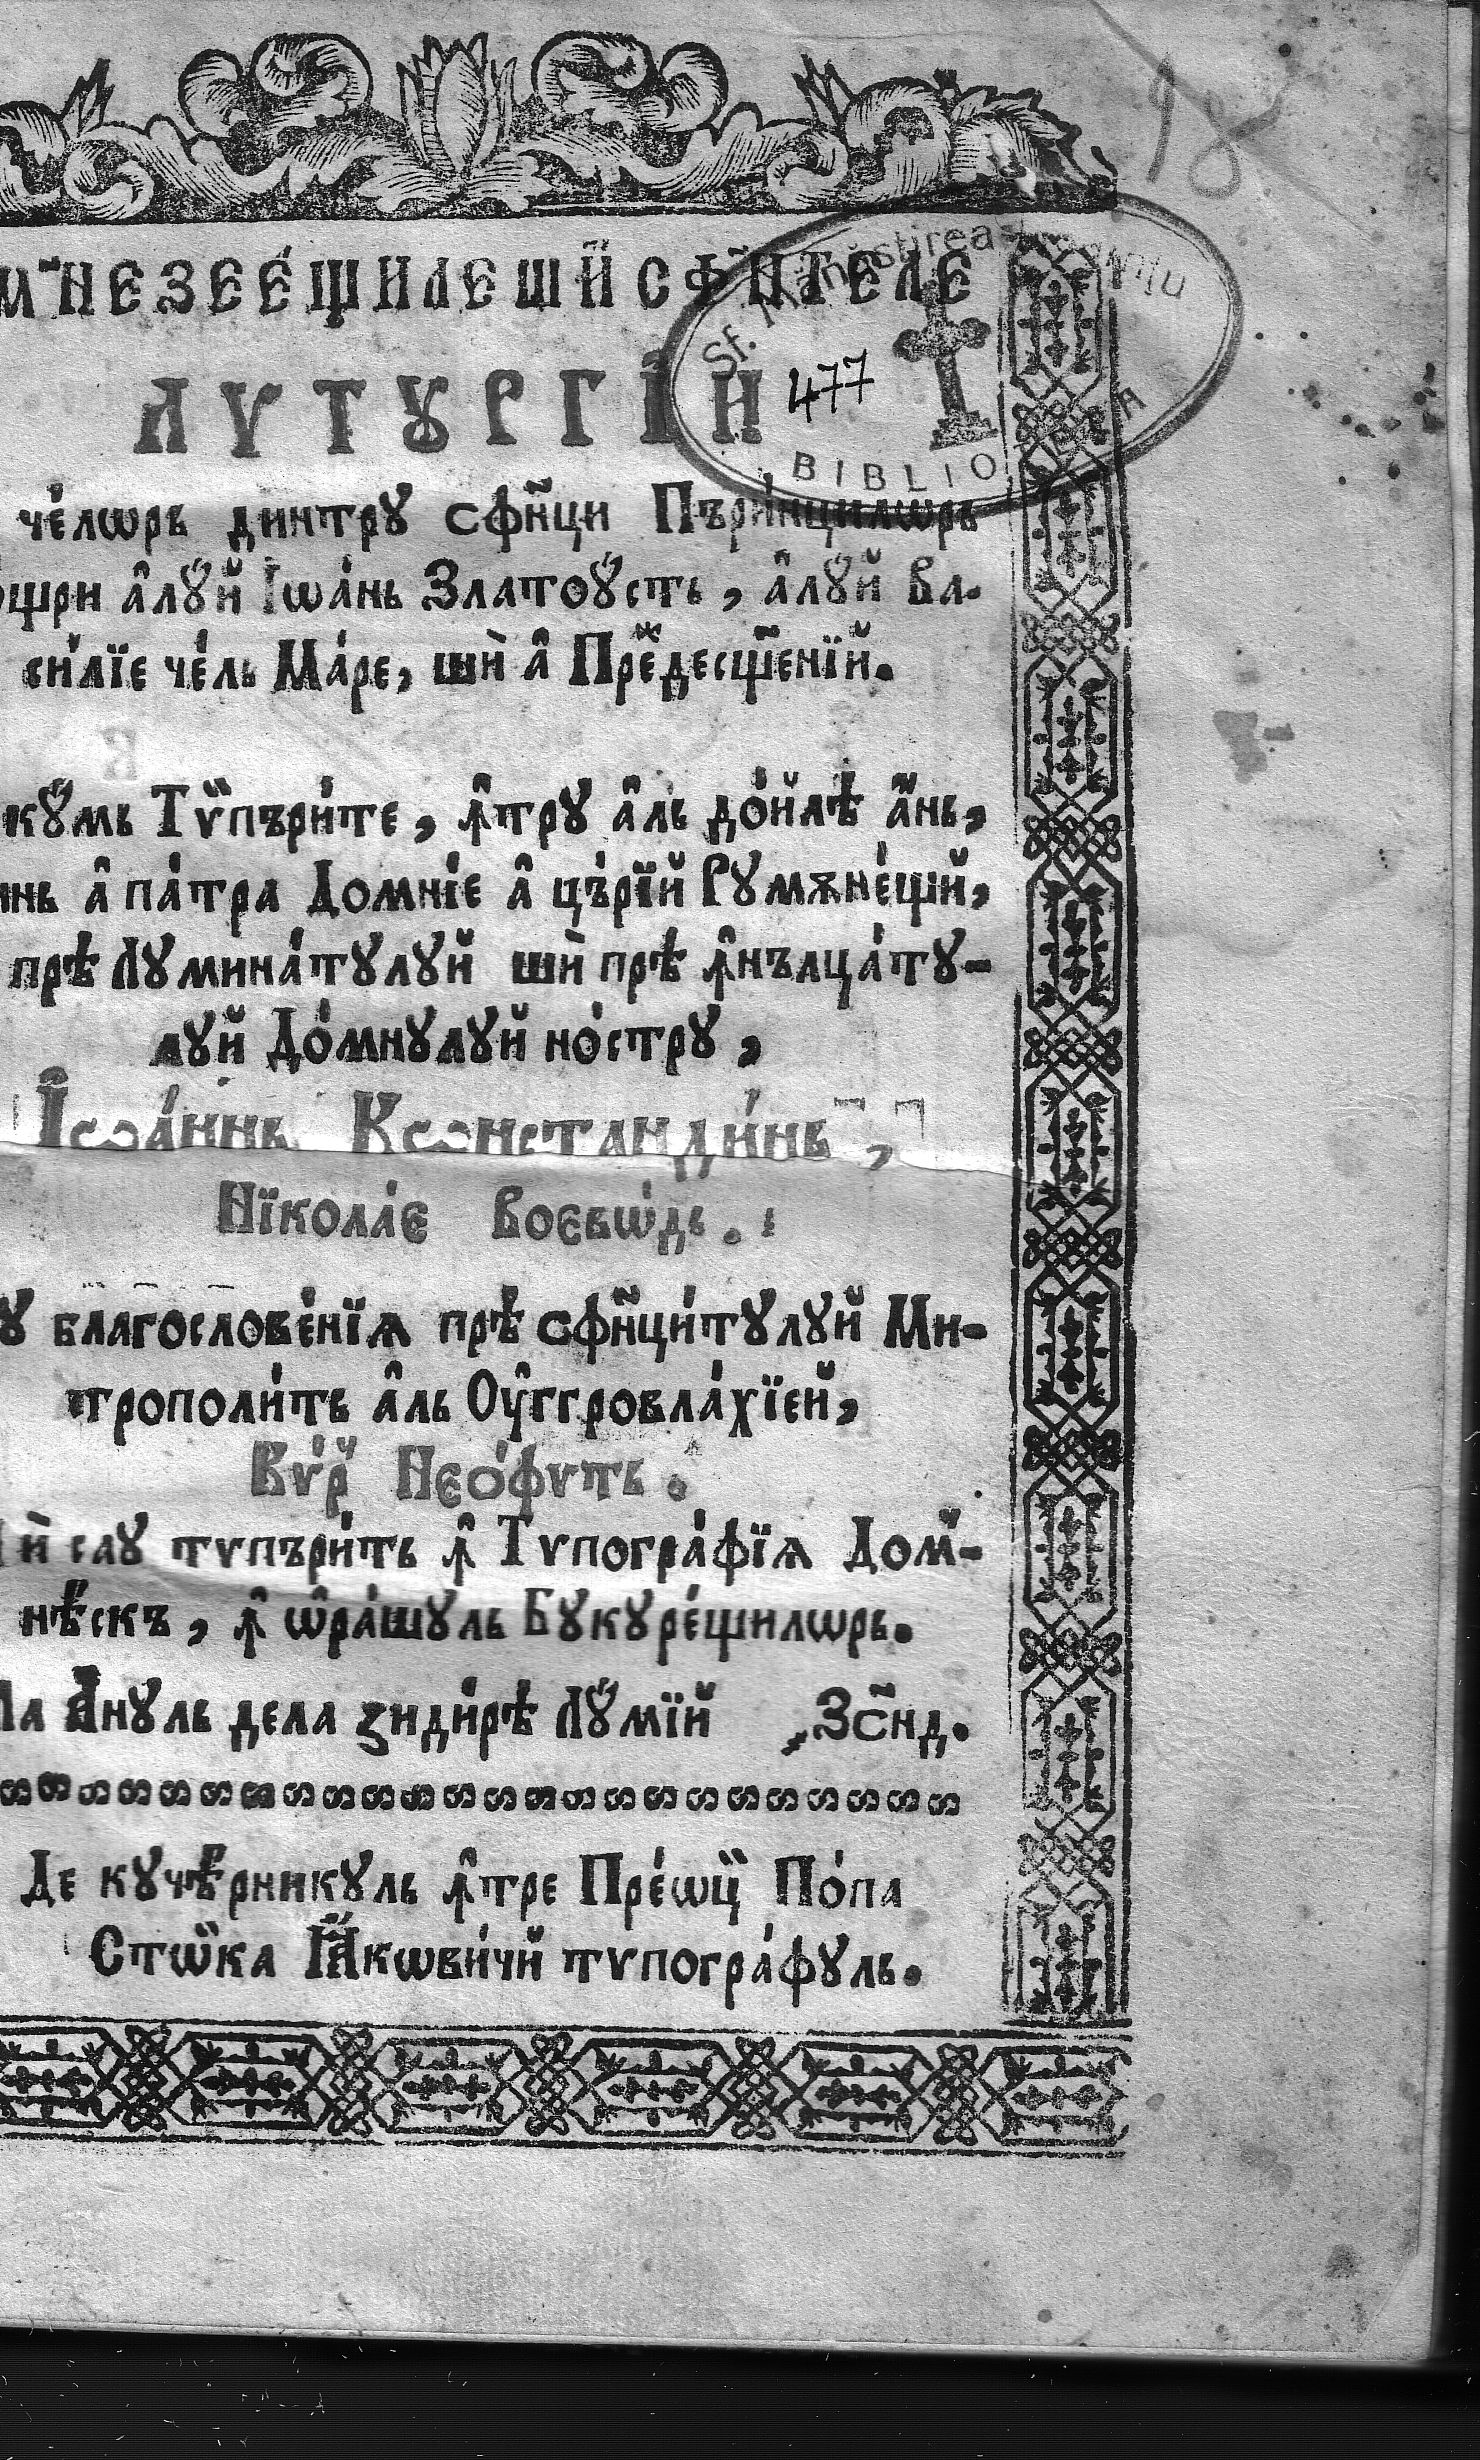 98
М̃НЕЗЕЕ́ЩИЛЕ ШЙ СФ҃НТЕЛЕ
Sf. Mănăstirea
ЛѴТꙊРГІ́Й
477
BIBLIOTECA
че́лѡрь динтрꙋ сфн҃ци Пъри́нцилѡрь
а҆лꙋ́й І҆ѡа́нь Златоꙋ́сть, а҆лꙋ́й Ва-
си́лїе че́ль Ма́ре, шѝ а҆ Преждесщ҃е́нїй.
Тѵпъри́те, ꙟ҆трꙋ а҆ль до́йлѣ а҆нь,
а҆ па́тра Домні́е а҆ цъ́рїй Рꙋмѫне́щй,
прѣ Лꙋмина́тꙋлꙋй шѝ прѣ ꙟ҆нълца́тꙋ-
лꙋй До́мнꙋлꙋй но́строу,
І҆ѡа́ннь Кѡнстанди́нь,
Нїкола́е Воєвѡ́дь.
благослове́нїѧ прѣ сфн҃ци́тꙋлꙋй Ми-
трополи́ть а҆ль Оу҆ггровла́хїей,
Кѵ́рꙋ Нео́фѵть.
саꙋ тѵпъри́ть ꙟ҆ Тѵпогра́фїѧ Дом-
нѣ́скъ, ꙟ҆ ѡ҆ра́шꙋль Бꙋкꙋре́щилѡрь.
Ла А҆нꙋль дела зиди́рѣ Лꙋ́мїй ҂Зс҃нд.
Де кꙋче́рникꙋль ꙟ҆тре Пре́ѡцй По́па
Стѡ́йка Ꙗ҆кѡви́чй тѵпогра́фꙋль.